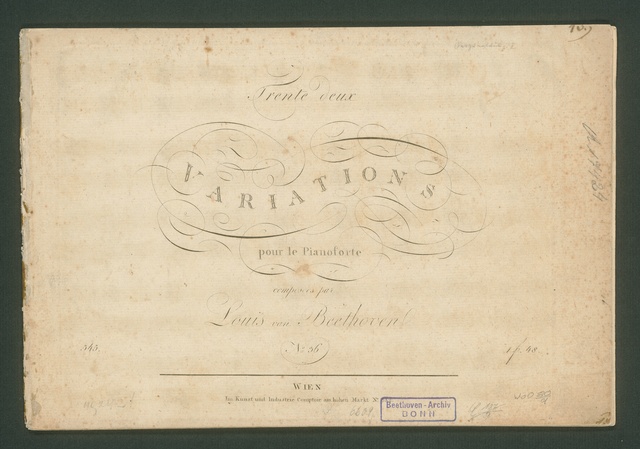 Trente deux
VARIATIONS
pour le Pianoforte
composées par
Louis van Beethoven
No 36
545.
1 f 48
WIEN
Im Kunst und Industrie Comptoir am hohen Markt No
Beethoven-Archiv
BONN